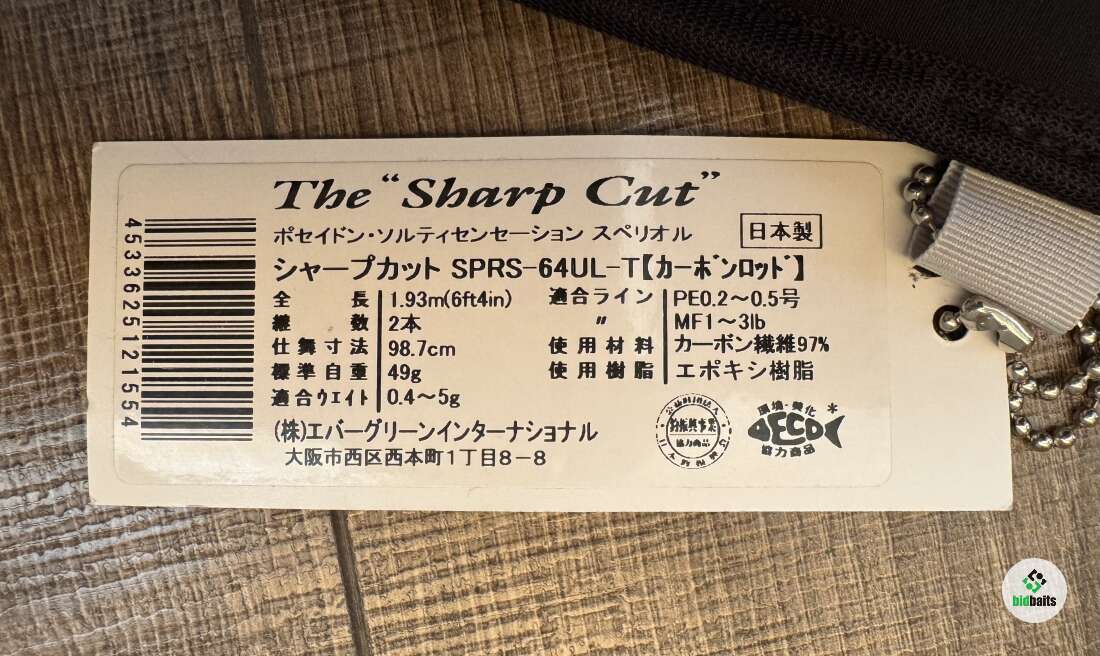 The "Sharp Cut"
ポセイドン・ソルティセンセーション スペリオル 日本製
シャープカット SPRS-64UL-T【カーボンロッド】
全長 1.93m(6ft4in) 適合ライン PE0.2〜0.5号
継数 2本 〃 MF1〜3lb
仕舞寸法 98.7cm 使用材料 カーボン繊維97%
標準自重 49g 使用樹脂 エポキシ樹脂
適合ウェイト 0.4〜5g
(株)エバーグリーンインターナショナル
大阪市西区西本町1丁目8-8
4533625121554
釣振興事業
協力商品
環境・美化
ECO
協力商品
bidbaits